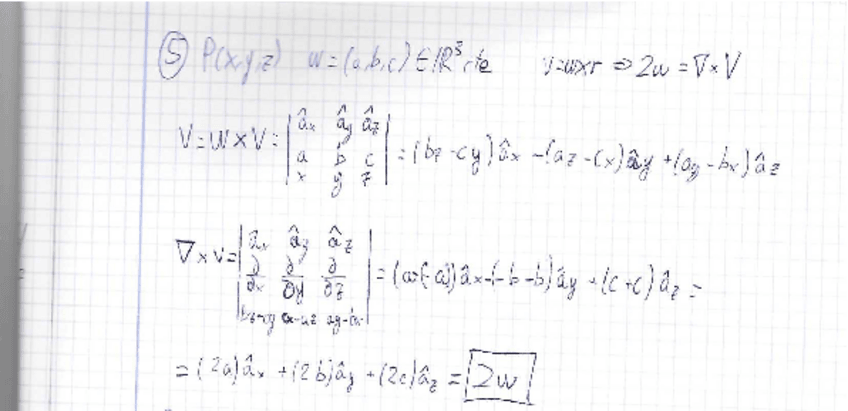 ⑤ P(x,y,z) w=(a,b,c) ∈ ℝ³ cte v=wxr ⇒ 2w = ∇×V
V=W×V= | âx ây âz | a b c | x y z | = (bz-cy)âx -(az-cx)ây +(ay-bx)âz
∇×V= | âx ây âz | ∂/∂x ∂/∂y ∂/∂z | bz-cy cx-az ay-bx | = (a-(-a))âx-(-b-b)ây +(c+c)âz =
= (2a)âx +(2b)ây +(2c)âz = 2w